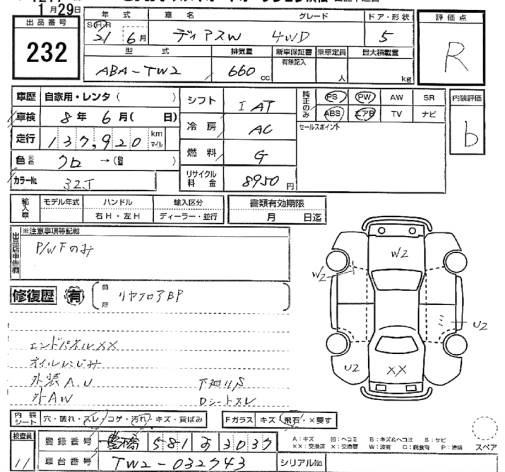 月29日
出品番号
232
年式 車名 グレード ドア・形状
S H R
21年6月 ディアスW 4WD 5
型式 排気量 新車保証書 乗車定員 最大積載量
有限記入
ABA-TW2 660cc 人 kg
評価点
R
車歴 自家用・レンタ( )
車検 8年6月( 日)
走行 137,920 km マイル
色 クロ →( )
カラーNo. 32J
シフト IAT
冷房 AC
燃料 G
リサイクル料金 8950円
純正のみ PS PW AW SR
ABS エアB TV ナビ
セールスポイント
内装評価
b
輸入車 モデル年式 ハンドル 輸入区分
年 右H・左H ディーラー・並行
書類有効期限
月 日迄
出品店申告欄 ※注意事項等記載
P/WFのみ
修復歴 有 箇所 リヤフロアBP
エンドパネルXX
オイルにじみ
外装A.U 下廻りS
外AW Dシートスレ
W2
W2
U2
U2
XX
内装シート 穴・破れ・スレ・コゲ・汚れ・キズ・黄ばみ
Fガラス キズ・飛石・×要す
検査員
11
登録番号 豊橋 581 あ 3037
車台番号 TW2-032743 シリアルNo.
A:キズ U:ヘコミ B:キズ&ヘコミ S:サビ
XX:交換済 X:交換要 W:波有 C:腐食有 P:塗装
スペア